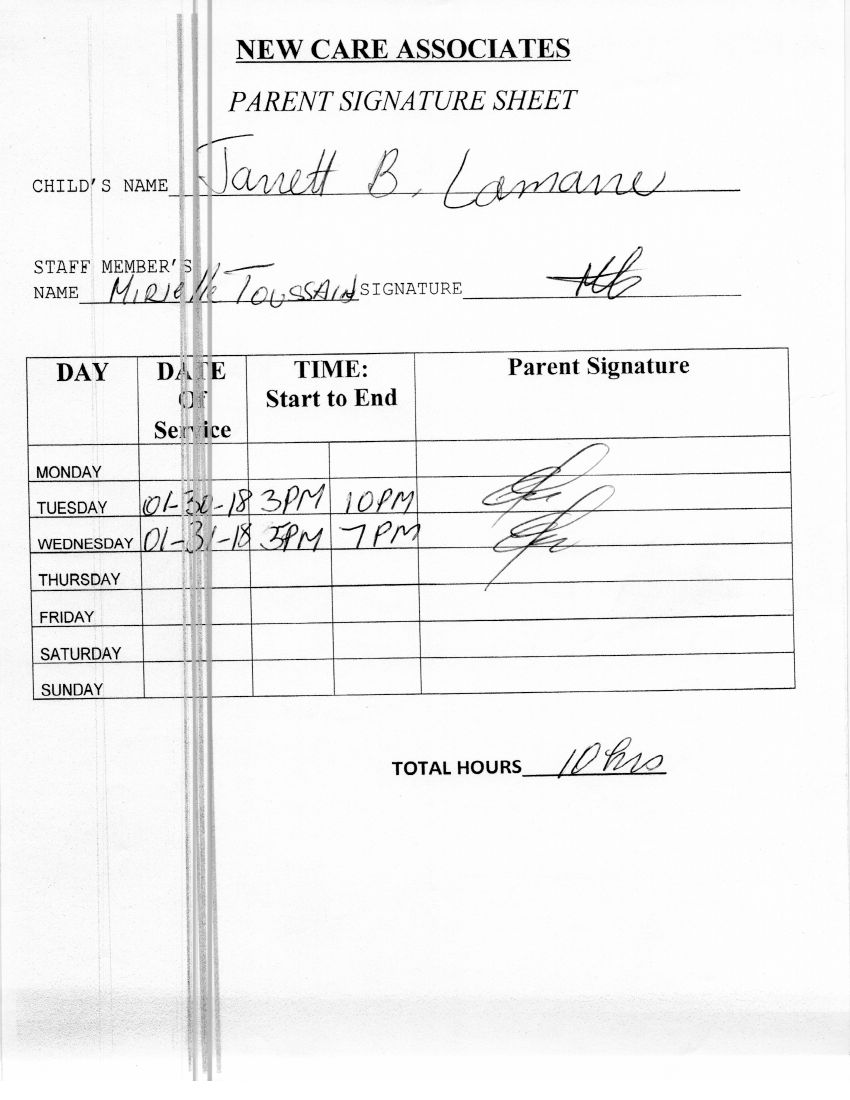 NEW CARE ASSOCIATES
PARENT SIGNATURE SHEET
CHILD'S NAME Jarrett B. Lamarre
STAFF MEMBER'S
NAME Mirielle Toussaint SIGNATURE
DAY DATE Of Service TIME: Start to End Parent Signature
MONDAY
TUESDAY 01-30-18 3PM 10PM
WEDNESDAY 01-31-18 PM 7PM
THURSDAY
FRIDAY
SATURDAY
SUNDAY
TOTAL HOURS 10 hrs